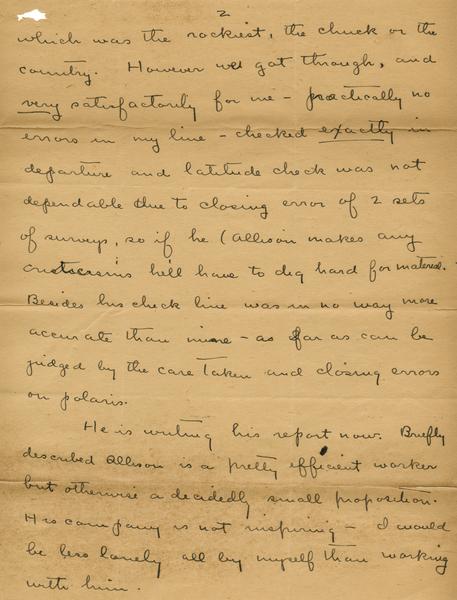 2
which was the rockiest, the chuck or the
country. However we got through, and
very satisfactorily for me – practically no
errors in my line – checked exactly in
departure and latitude check was not
dependable due to closing error of 2 sets
of surveys, so if he (Allison makes any
he'll have to dig hard for material.
Besides his check line was in no way more
accurate than mine – as far as can be
judged by the care taken and closing errors
on polaris.
He is writing his report now. Briefly
described Allison is a pretty efficient worker
but otherwise a decidedly small proposition.
His company is not inspiring – I would
be less lonely all by myself than working
with him.